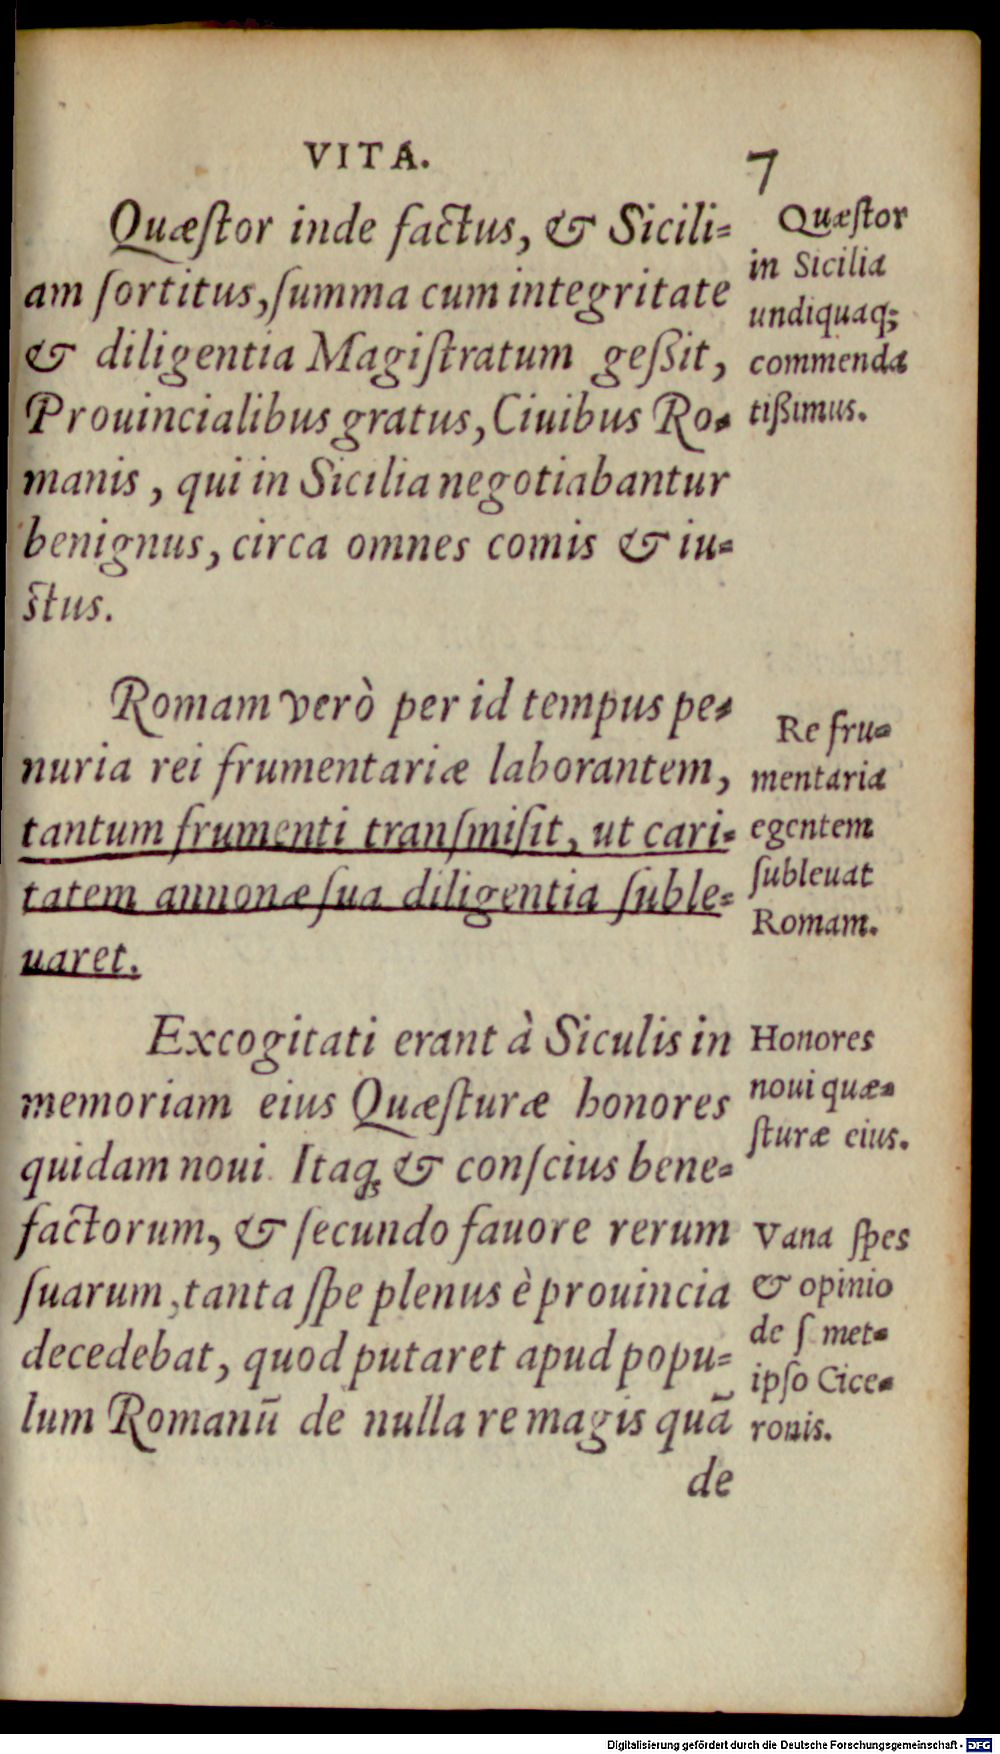 VITA.
7
Quæſtor inde factus, & Sicili-
am ſortitus, ſumma cum integritate
& diligentia Magiſtratum geßit,
Prouincialibus gratus, Ciuibus Ro-
manis, qui in Sicilia negotiabantur
benignus, circa omnes comis & iu-
ſtus.
Quæſtor
in Sicilia
undiquaq;
commenda
tißimus.
Romam verò per id tempus pe-
nuria rei frumentariæ laborantem,
tantum frumenti tranſmiſit, ut cari-
tatem annonæ ſua diligentia ſuble-
uaret.
Re fru-
mentaria
egentem
ſubleuat
Romam.
Excogitati erant à Siculis in
memoriam eius Quæſturæ honores
quidam noui. Itaq; & conſcius bene-
factorum, & ſecundo fauore rerum
ſuarum, tanta ſpe plenus è prouincia
decedebat, quod putaret apud popu-
lum Romanū de nulla re magis quā
de
Honores
noui quæ-
ſturæ eius.
Vana ſpes
& opinio
de ſ met-
ipſo Cice-
ronis.
Digitalisierung gefördert durch die Deutsche Forschungsgemeinschaft - DFG